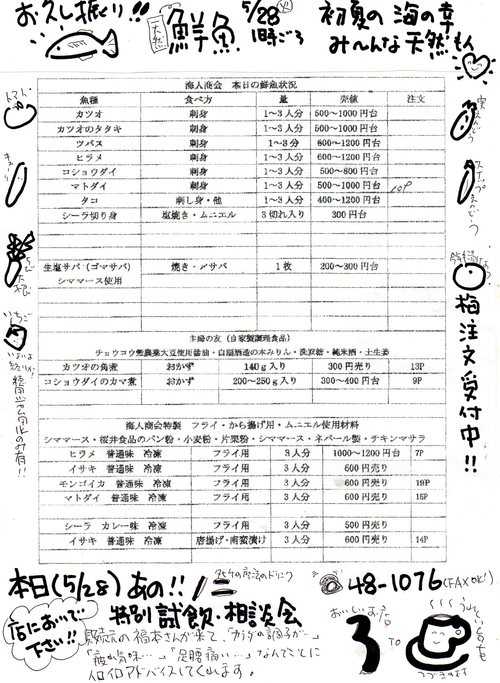 お久し振り!!
天然
鮮魚
5/28
1時ごろ
初夏の海の幸
み〜んな天然もん
海人商会 本日の鮮魚状況
魚種 食べ方 量 売値 注文
カツオ 刺身 1〜3人分 500〜1000円台
カツオのタタキ 刺身 1〜3人分 500〜1000円台
ツバス 刺身 1〜3分 800〜1200円台
ヒラメ 刺身 1〜3人分 600〜1200円台
コショウダイ 刺身 1〜3人分 500〜800円台
マトダイ 刺身 1〜3人分 500〜1000円台 10P
タコ 刺し身・他 1〜3人分 400〜1200円台
シーラ切り身 塩焼き・ムニエル 3切れ入り 300円台
生塩サバ(ゴマサバ) 焼き・〆サバ 1枚 200〜300円台
シママース使用
主婦の友(自家製調理食品)
チョウコウ無農薬大豆使用醤油・白扇酒造の本みりん・洗双糖・純米酒・土生姜
カツオの角煮 おかず 140g入り 300円売り 13P
コショウダイのカマ煮 おかず 200〜250g入り 300〜400円台 9P
海人商会特製 フライ・から揚げ用・ムニエル使用材料
シママース・桜井食品のパン粉・小麦粉・片栗粉・シママース・ネパール製・チキンマサラ
ヒラメ 普通味 冷凍 フライ用 3人分 1000〜1200円台 7P
イサキ 普通味 冷凍 フライ用 3人分 600円売り
モンゴイカ 普通味 冷凍 フライ用 3人分 600円売り 19P
マトダイ 普通味 冷凍 フライ用 3人分 600円売り 15P
シーラ カレー味 冷凍 フライ用 3人分 500円売り
イサキ 普通味 冷凍 唐揚げ・南蛮漬け 3人分 600円売り 14P
トマト
きゅうり
いちご
実えんどう
スナップえんどう
梅注文受付中!!
本日(5/28)あの!!
特別試飲・相談会
店においで下さい!!
販売の福本さんが来て、「カラダの調子が…」
「疲れ気味…」「足腰痛い…」なんてことに
イロイロアドバイスしてくれます。
☎48-1076(FAXOK!)
おいしいお店
3 TO
つづきのむら